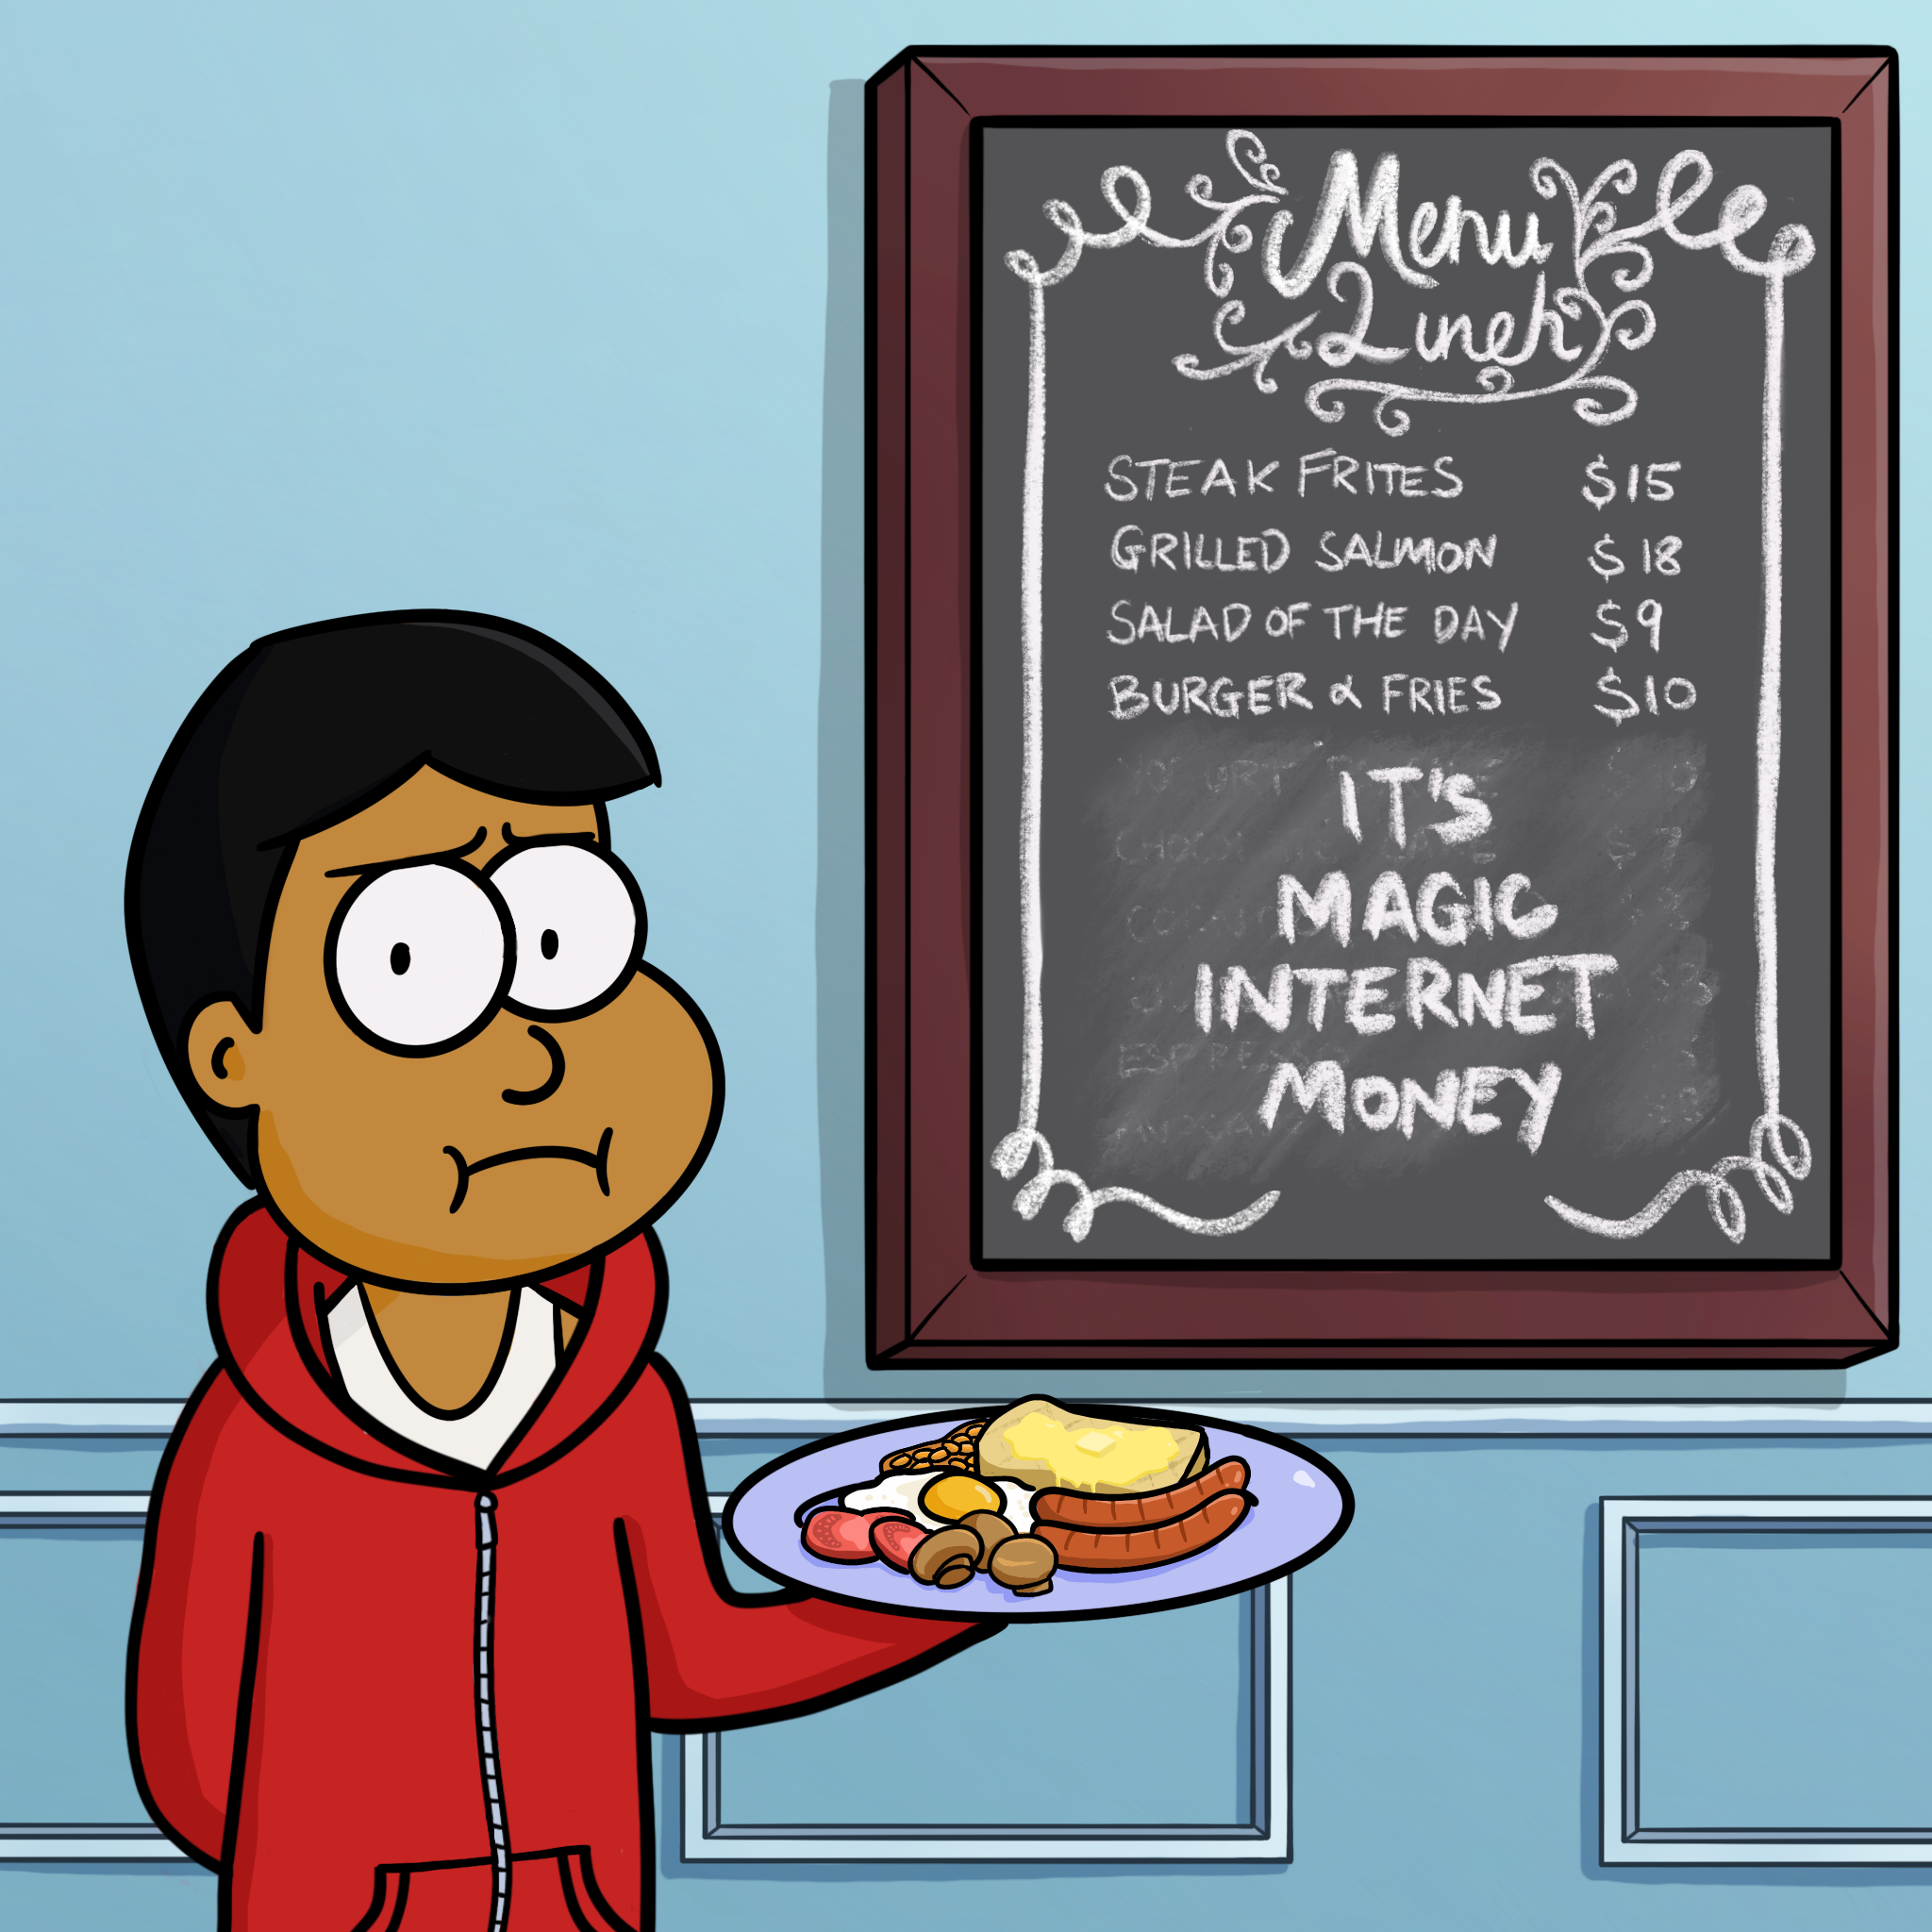 Menu
Lunch
STEAK FRITES $15
GRILLED SALMON $18
SALAD OF THE DAY $9
BURGER & FRIES $10
IT'S
MAGIC
INTERNET
MONEY